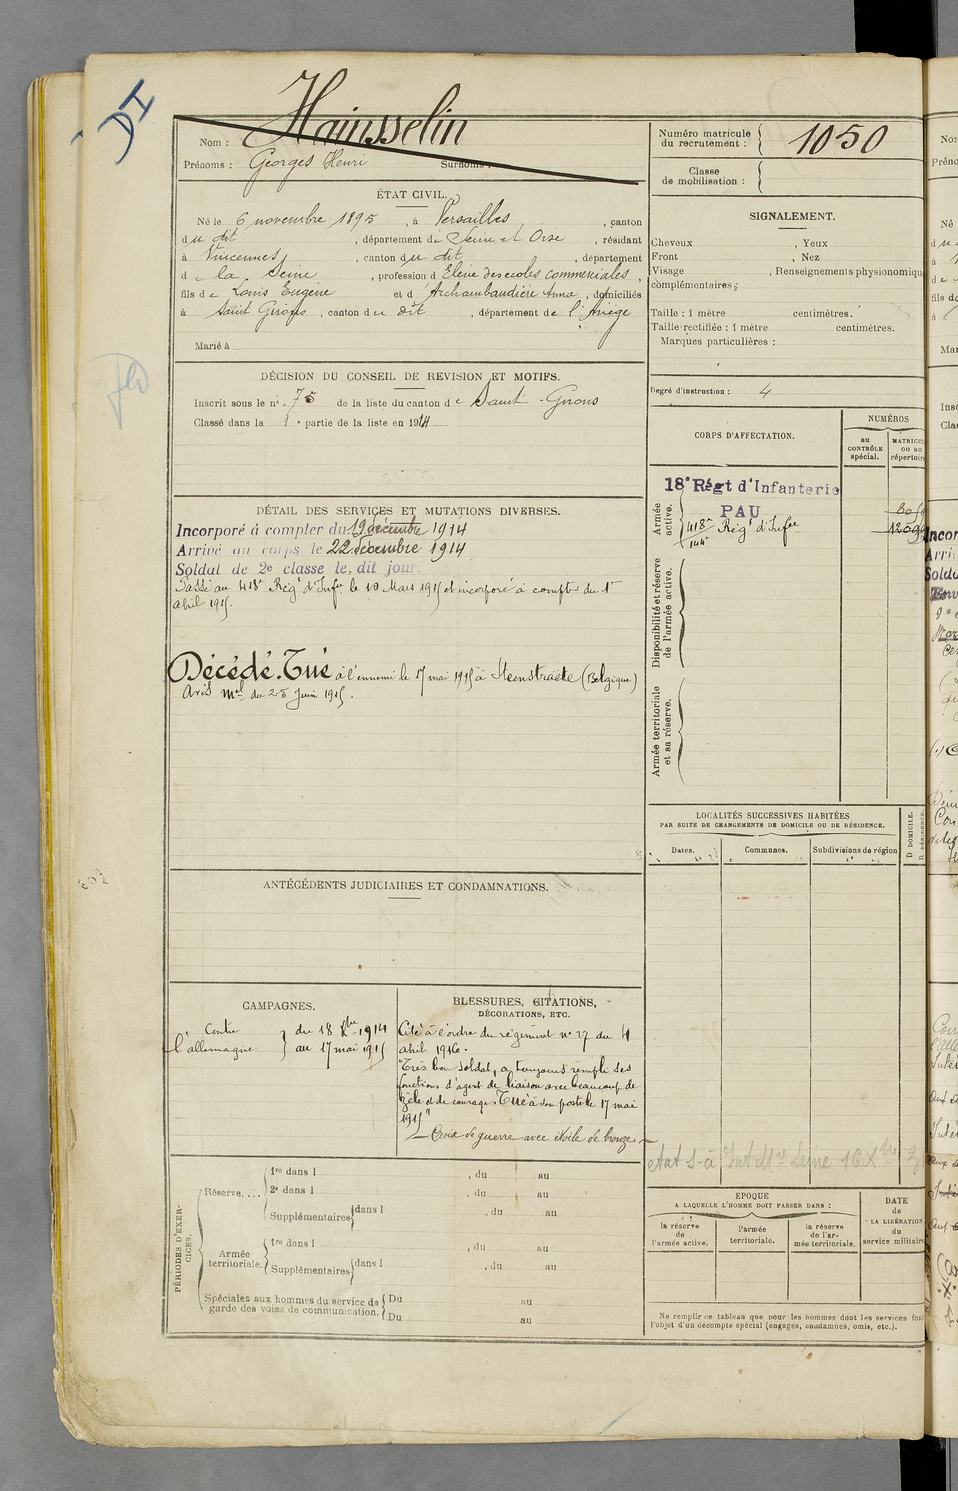 DI
Nom : Hainsselin
Prénoms : Georges Henri Surnoms :
Numéro matricule du recrutement : 1050
Classe de mobilisation :
ÉTAT CIVIL.
Né le 6 novembre 1895, à Versailles, canton
du dit, département de Seine et Oise, résidant
à Vincennes, canton du dit, département
de la Seine, profession d'Elève des ecoles commerciales,
fils de Louis Eugène et d'Archambaudière Anna, domiciliés
à Saint Girons, canton du dit, département de l'Ariège
Marié à
SIGNALEMENT.
Cheveux , Yeux
Front , Nez
Visage , Renseignements physionomiqu
complémentaires :
Taille : 1 mètre centimètres.
Taille rectifiée : 1 mètre centimètres.
Marques particulières :
DÉCISION DU CONSEIL DE REVISION ET MOTIFS.
Inscrit sous le n° 75 de la liste du canton de Saint-Girons
Classé dans la 1e partie de la liste en 1914
Degré d'instruction : 4
CORPS D'AFFECTATION.
NUMÉROS
au CONTRÔLE spécial.
MATRICU ou au répertoire
Armée active.
18e Régt d'Infanterie
PAU
418e Régt d'Infie
144e
Disponibilité et réserve de l'armée active.
Armée territoriale et sa réserve.
DÉTAIL DES SERVICES ET MUTATIONS DIVERSES.
Incorporé à compter du 19 décembre 1914
Arrivé au corps le 22 décembre 1914
Soldat de 2e classe le, dit jour.
Passé au 418e Régt d'Infie le 10 Mars 1915 et incorporé à compter du 1er
abril 1915.
Décédé. Tué à l'ennemi le 17 mai 1915 à Steenstraëte (Belgique)
Avis Mel du 28 Juin 1915.
LOCALITÉS SUCCESSIVES HABITÉES
PAR SUITE DE CHANGEMENTS DE DOMICILE OU DE RÉSIDENCE.
Dates.
Communes.
Subdivisions de région
D DOMICILE.
R RÉSIDENCE.
ANTÉCÉDENTS JUDICIAIRES ET CONDAMNATIONS.
CAMPAGNES.
Contre } du 18 Xbre 1914
l'allemagne } au 17 mai 1915
BLESSURES, CITATIONS,
DÉCORATIONS, ETC.
Cité à l'ordre du régiment n° 27 du 4
abril 1916.
"Très bon soldat, a toujours rempli ses
fonctions d'agent de liaison avec beaucoup de
zèle et de courage. Tué à son poste le 17 mai
1915"
— Croix de guerre avec étoile de bronze —
PÉRIODES D'EXERCICES.
Réserve....
1re dans l , du au
2e dans l , du au
Supplémentaires dans l , du au
Armée territoriale.
1re dans l , du au
Supplémentaires dans l , du au
Spéciales aux hommes du service de garde des voies de communication.
Du au
Du au
EPOQUE
A LAQUELLE L'HOMME DOIT PASSER DANS :
la réserve de l'armée active.
l'armée territoriale.
la réserve de l'armée territoriale.
DATE de LA LIBÉRATION du service militaire
Ne remplir ce tableau que pour les hommes dont les services font
l'objet d'un décompte spécial (engagés, condamnés, omis, etc.).